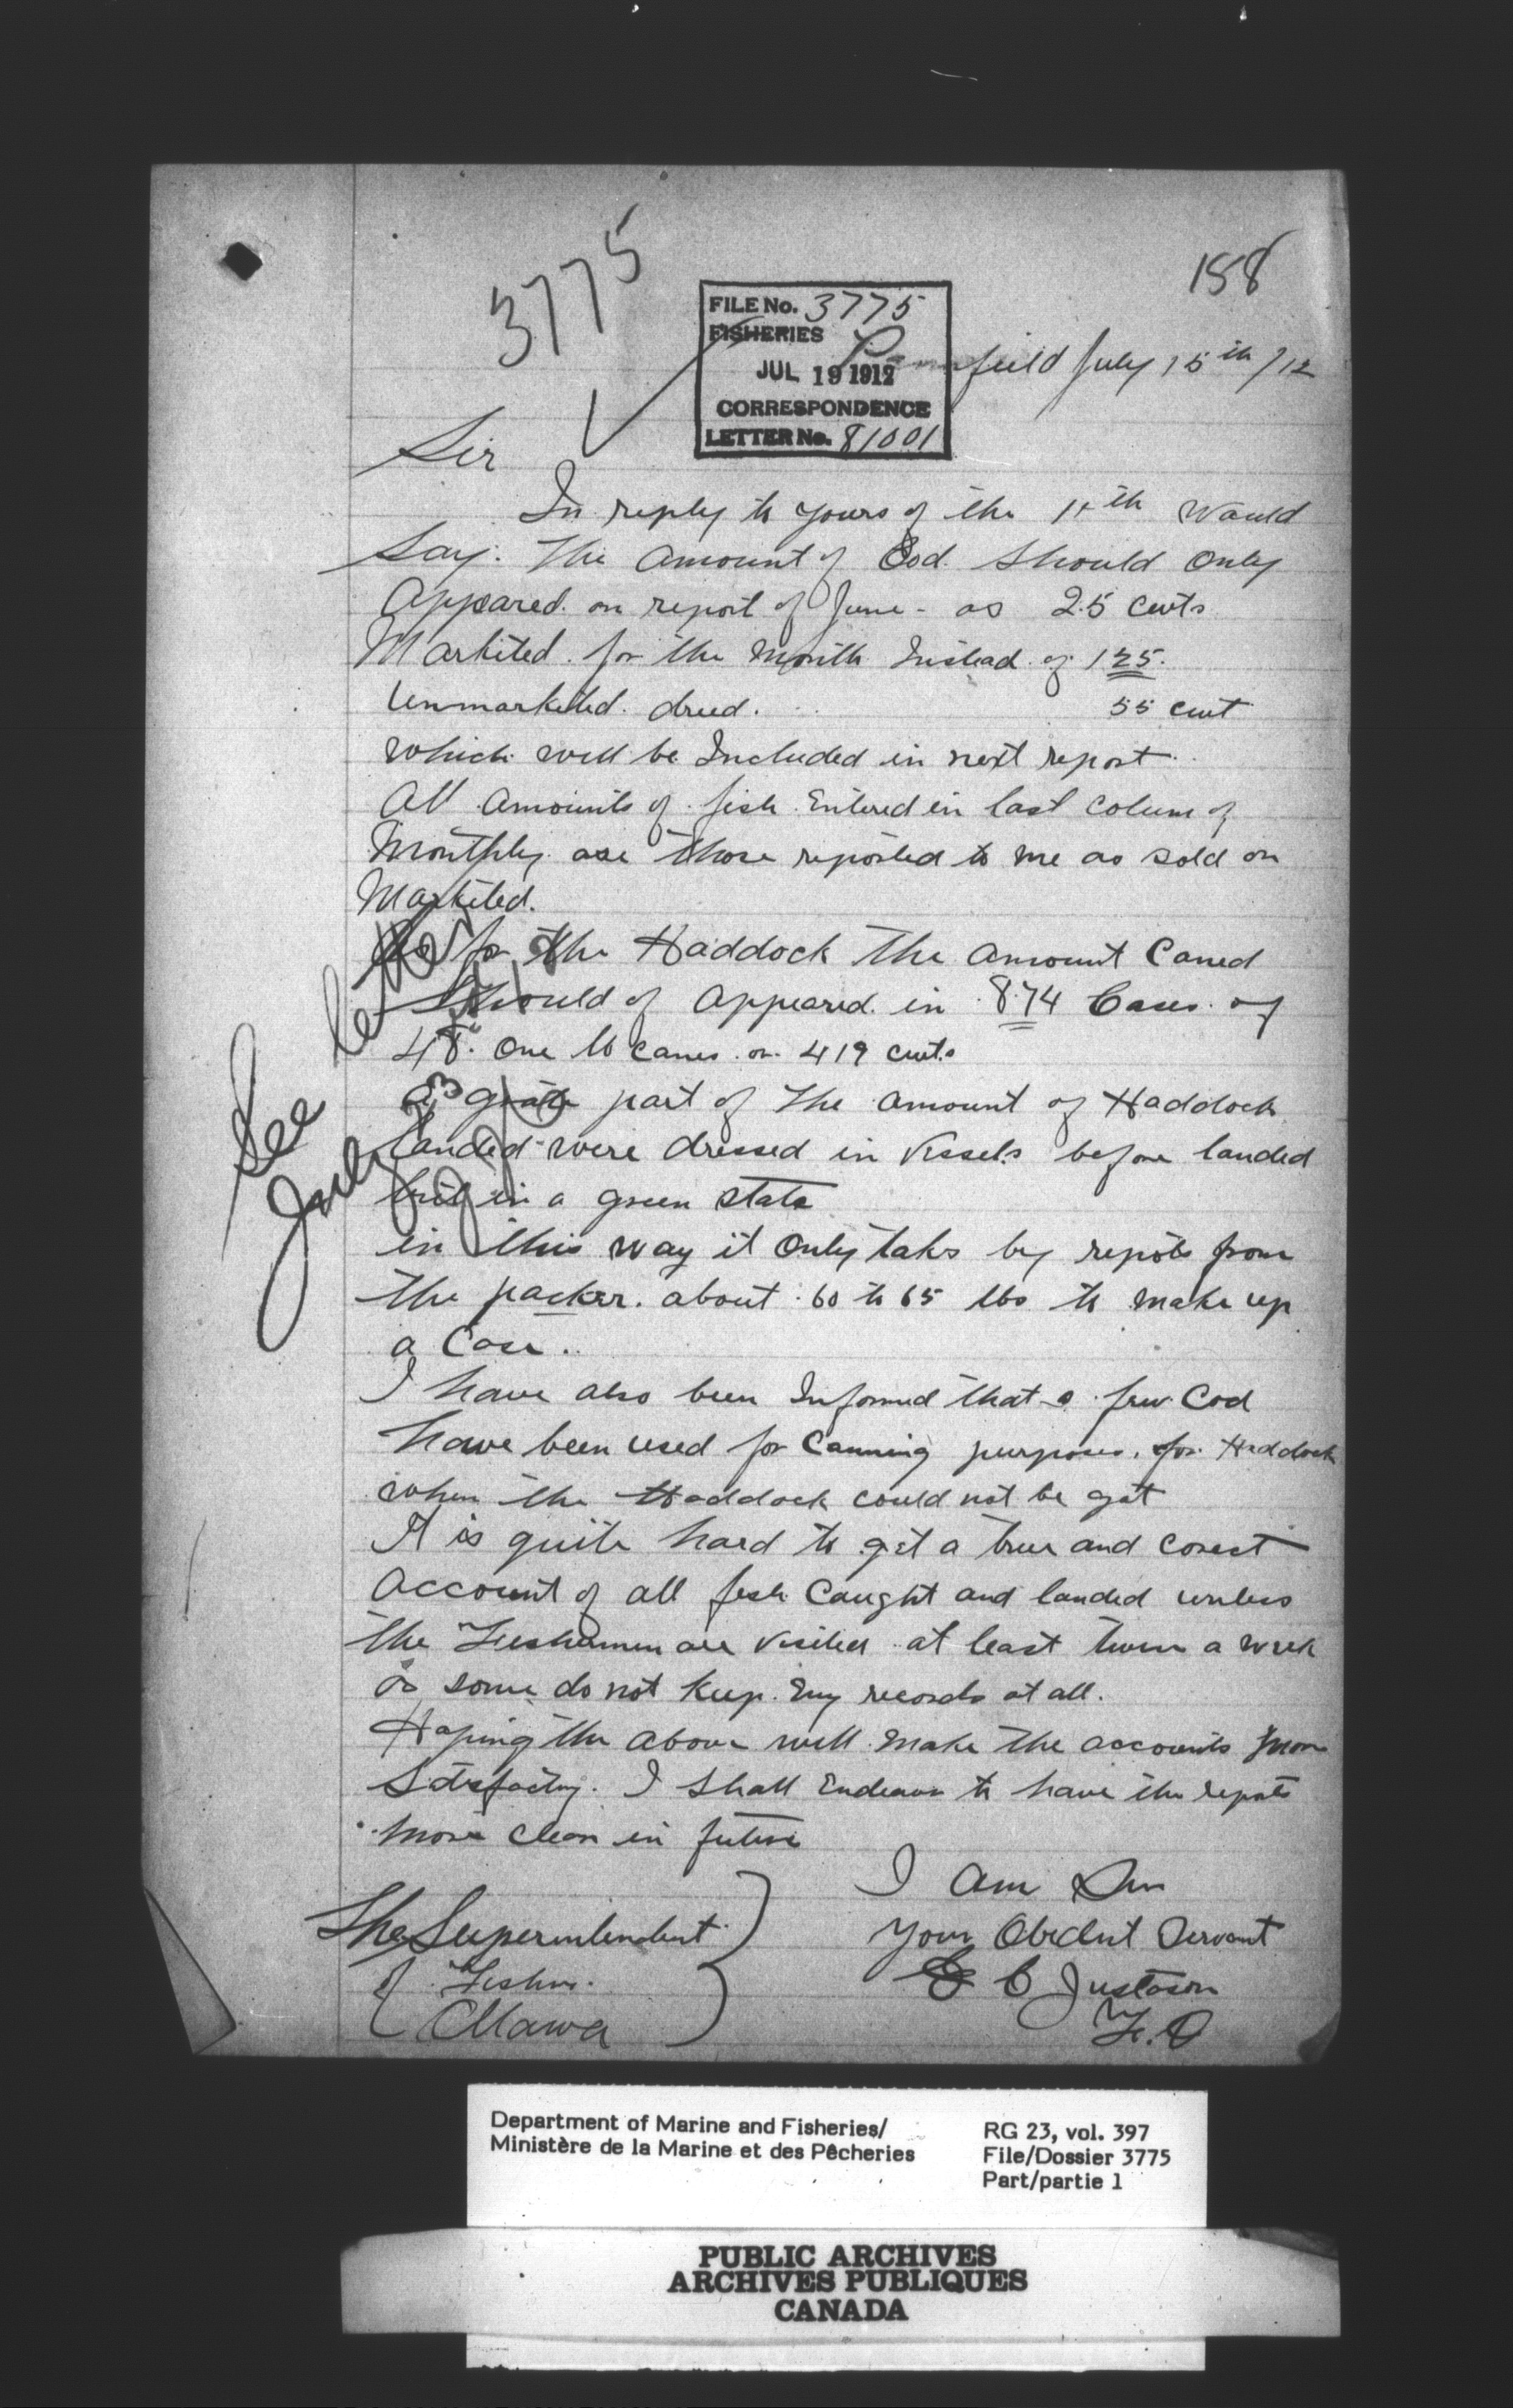 3775
158
FILE No. 3775
FISHERIES
JUL 19 1912
CORRESPONDENCE
LETTER No. 81001
Pennfield July 15th /12
Sir
In reply to yours of the 11th Would
Say. The Amount of Cod. Should Only
Appeared. on report of June - as 25 cwts
Markited. for the Month Instead of 125.
Unmarkited. dried. 55 cwt
which will be Included in next report
All Amounts of fish Entered in last Colum of
Monthly are those reported to me as sold or
Markited.
As for the Haddock The Amount Caned
Should of Appeared. in 874 Cases of
48. One lb Canes. or 419 cwts
a grate part of The Amount of Haddock
landed were dressed in Vessels before landed
but in a green state
in this way it Only taks by repots from
the packer. about 60 to 65 lbs to Make up
a Case.
I have also been Informed that a few Cod
have been used for Canning purposes, for Haddock
when the Haddock could not be got
It is quite hard to get a true and corect
Account of all fish Caught and landed unless
the Fishermen are visited at least twice a week
as some do not keep. Eny records at all.
Hoping the above will make the accounts more
Satisfactry. I Shall Endeavor to have the repots
more clear in future
I Am Sir
Your Obedent Servant
C Justason
F.O
The Superintendent
of Fisher.
Ottawa
See letter
July 23
Department of Marine and Fisheries/
Ministère de la Marine et des Pêcheries
RG 23, vol. 397
File/Dossier 3775
Part/partie 1
PUBLIC ARCHIVES
ARCHIVES PUBLIQUES
CANADA